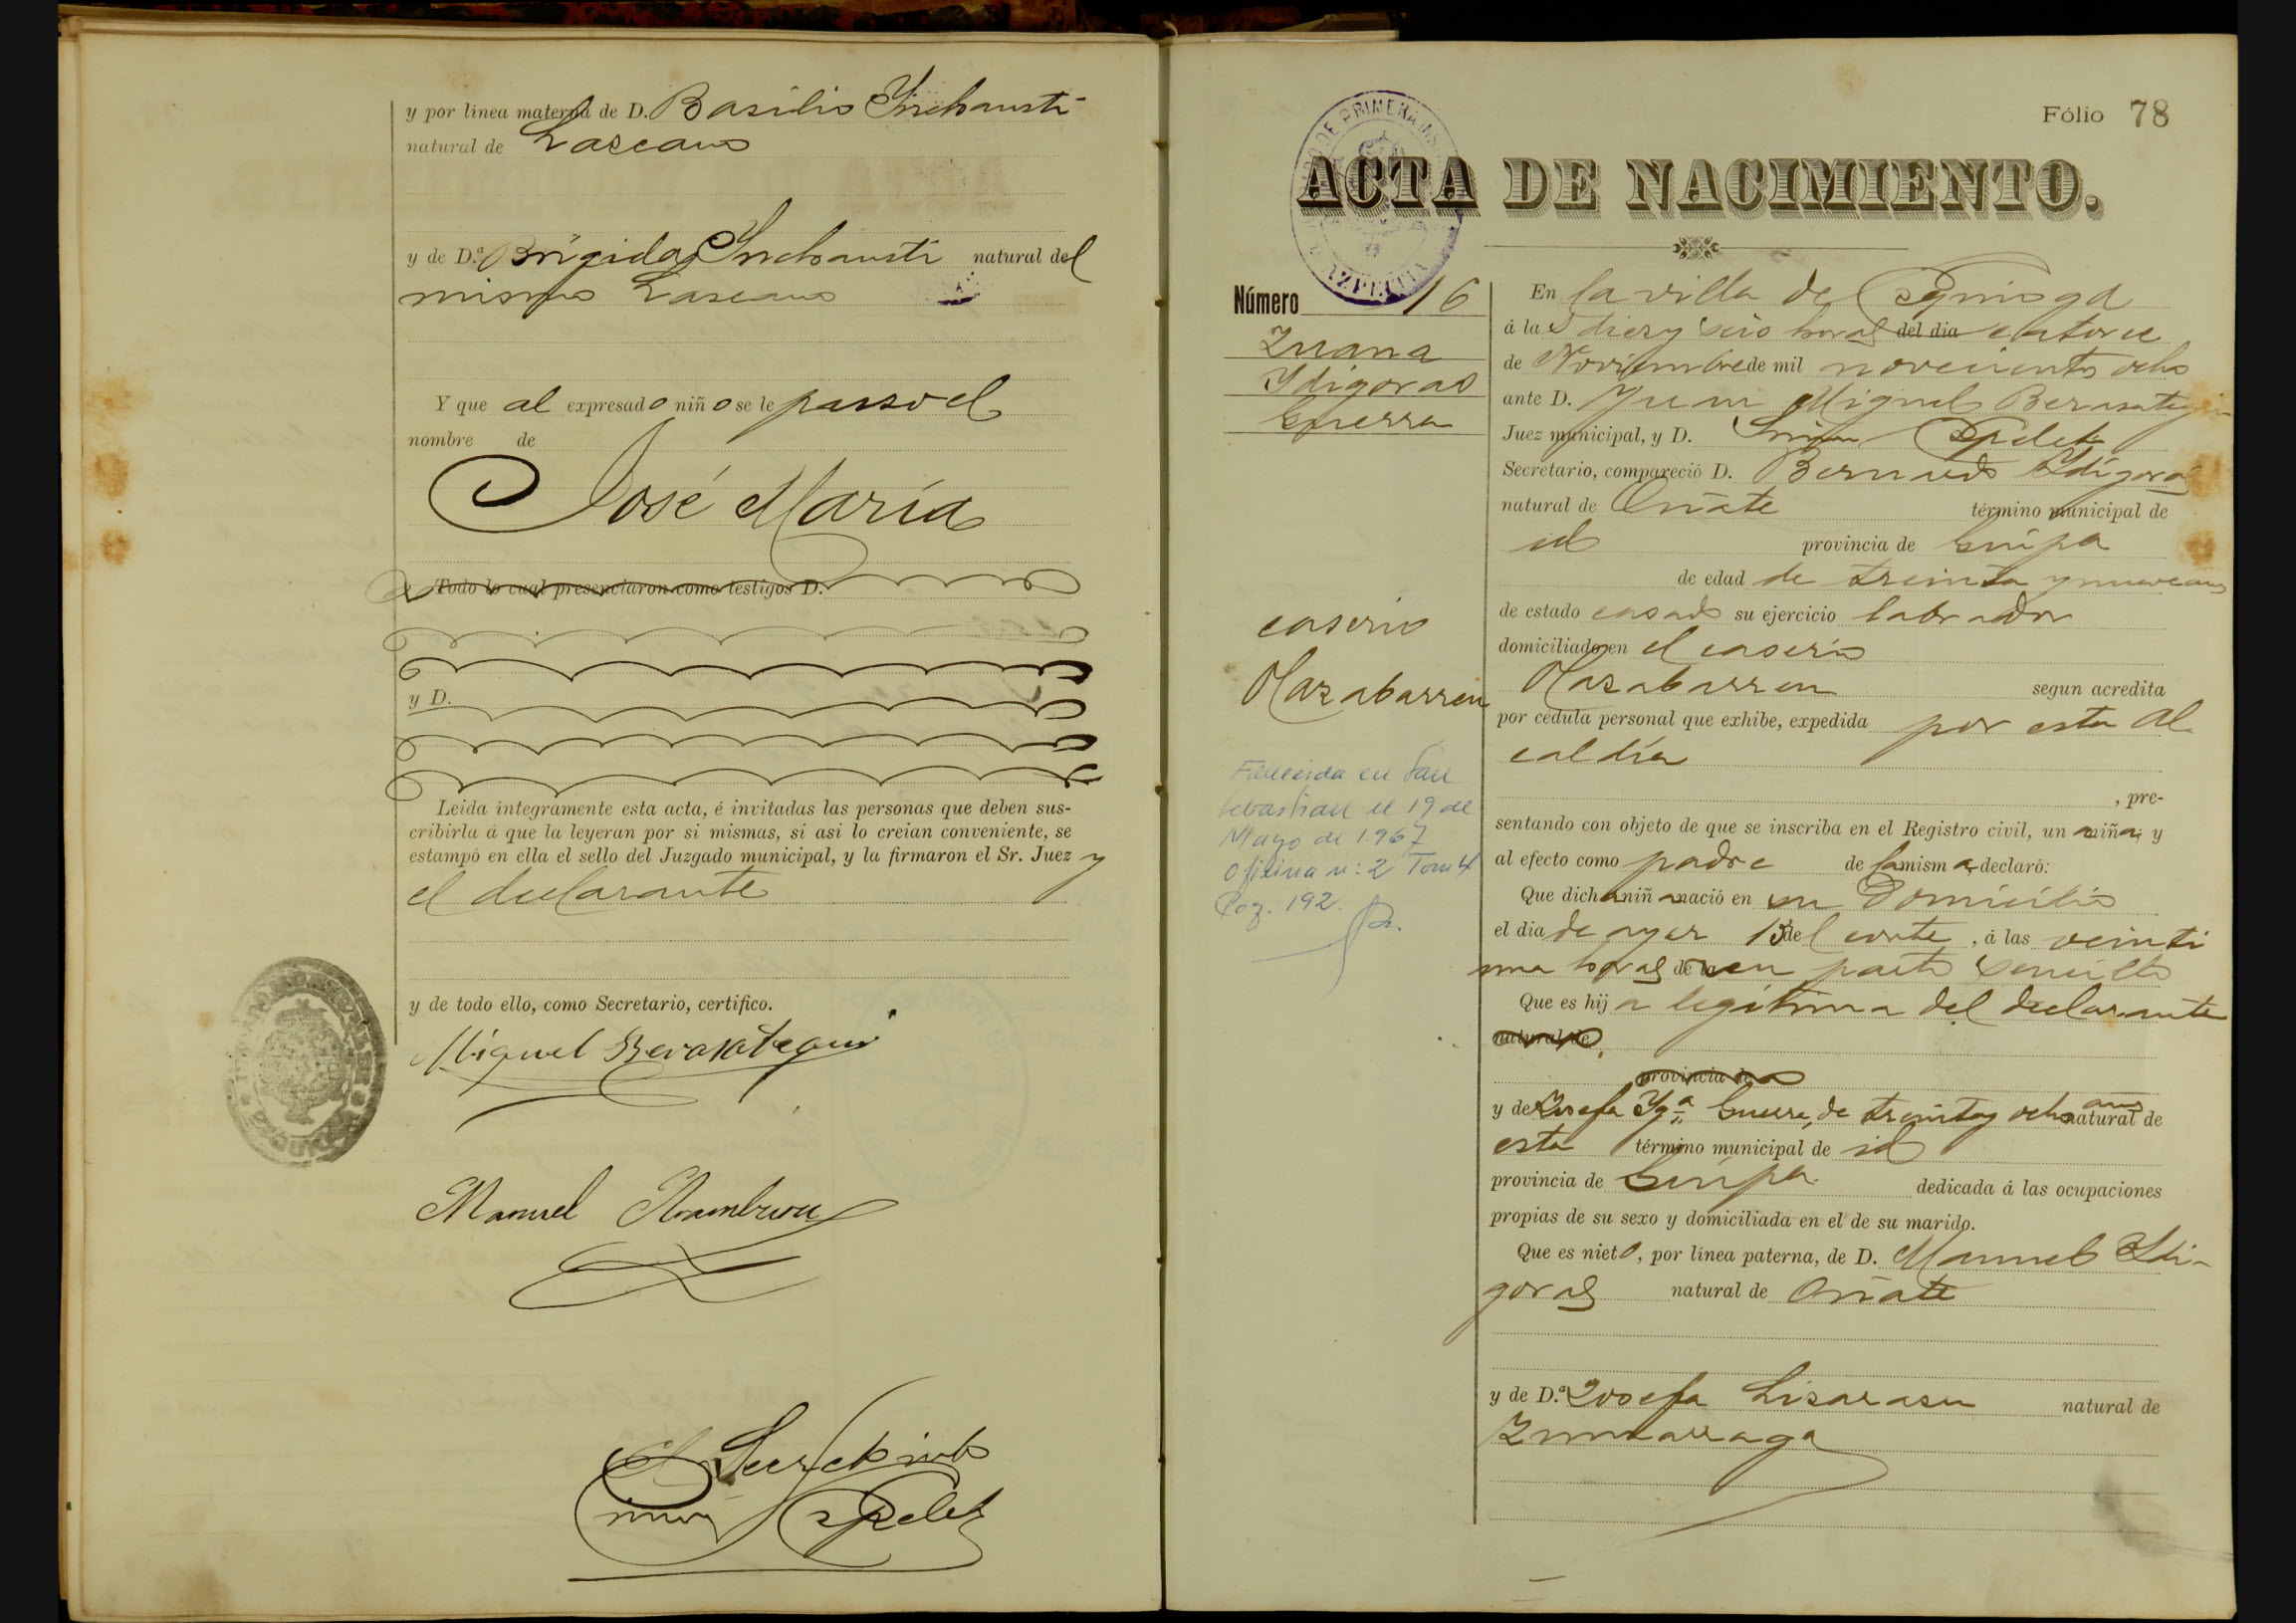 y por línea materna de D. Basilio Ynchausti
natural de Lazcano
y de D.ª Brígida Ynchausti natural del
mismo Lazcano
Y que al expresado niño se le puso el
nombre de
José María
Todo lo cual presenciaron como testigos D.
y D.
Leida íntegramente esta acta, é invitadas las personas que deben sus-
cribirla á que la leyeran por si mismas, si asi lo creian conveniente, se
estampó en ella el sello del Juzgado municipal, y la firmaron el Sr. Juez y
el declarante
y de todo ello, como Secretario, certifico.
Miguel Berasategui
Manuel Aramburu
El Secretario
Fólio 78
ACTA DE NACIMIENTO.
Número 16
Juana
Ydigoras
Guerra
caserio
Olazabarren
Fallecida en San
Sebastian el 19 de
Mayo de 1.967
Oficina nº 2 Tom 4
Pag. 192.
En la villa de Ezquioga
á las diez y seis horas del dia catorce
de Noviembre de mil novecientos ocho
ante D. Juan Miguel Berasategui
Juez municipal, y D.
Secretario, compareció D. Bernardo Ydígoras
natural de Oñate término municipal de
id provincia de Guipa
de edad de treinta y nueve años
de estado casado su ejercicio labrador
domiciliado en el caserío
Olazabarren segun acredita
por cédula personal que exhibe, expedida por esta Al
caldía
, pre-
sentando con objeto de que se inscriba en el Registro civil, un niña; y
al efecto como padre de la misma, declaró:
Que dicha niña nació en su Domicilio
el dia de ayer 13 del corrte, á las veinti
una horas de la en parto sencillo
Que es hija legítima del declarante
natural de
provincia de
y de Josefa Ygª Guerra, de treinta y ocho años natural de
esta término municipal de id
provincia de Guipa dedicada á las ocupaciones
propias de su sexo y domiciliada en el de su marido.
Que es nieto, por línea paterna, de D. Manuel Ydi-
goras natural de Oñate
y de D.ª Josefa Lizarazu natural de
Zumarraga